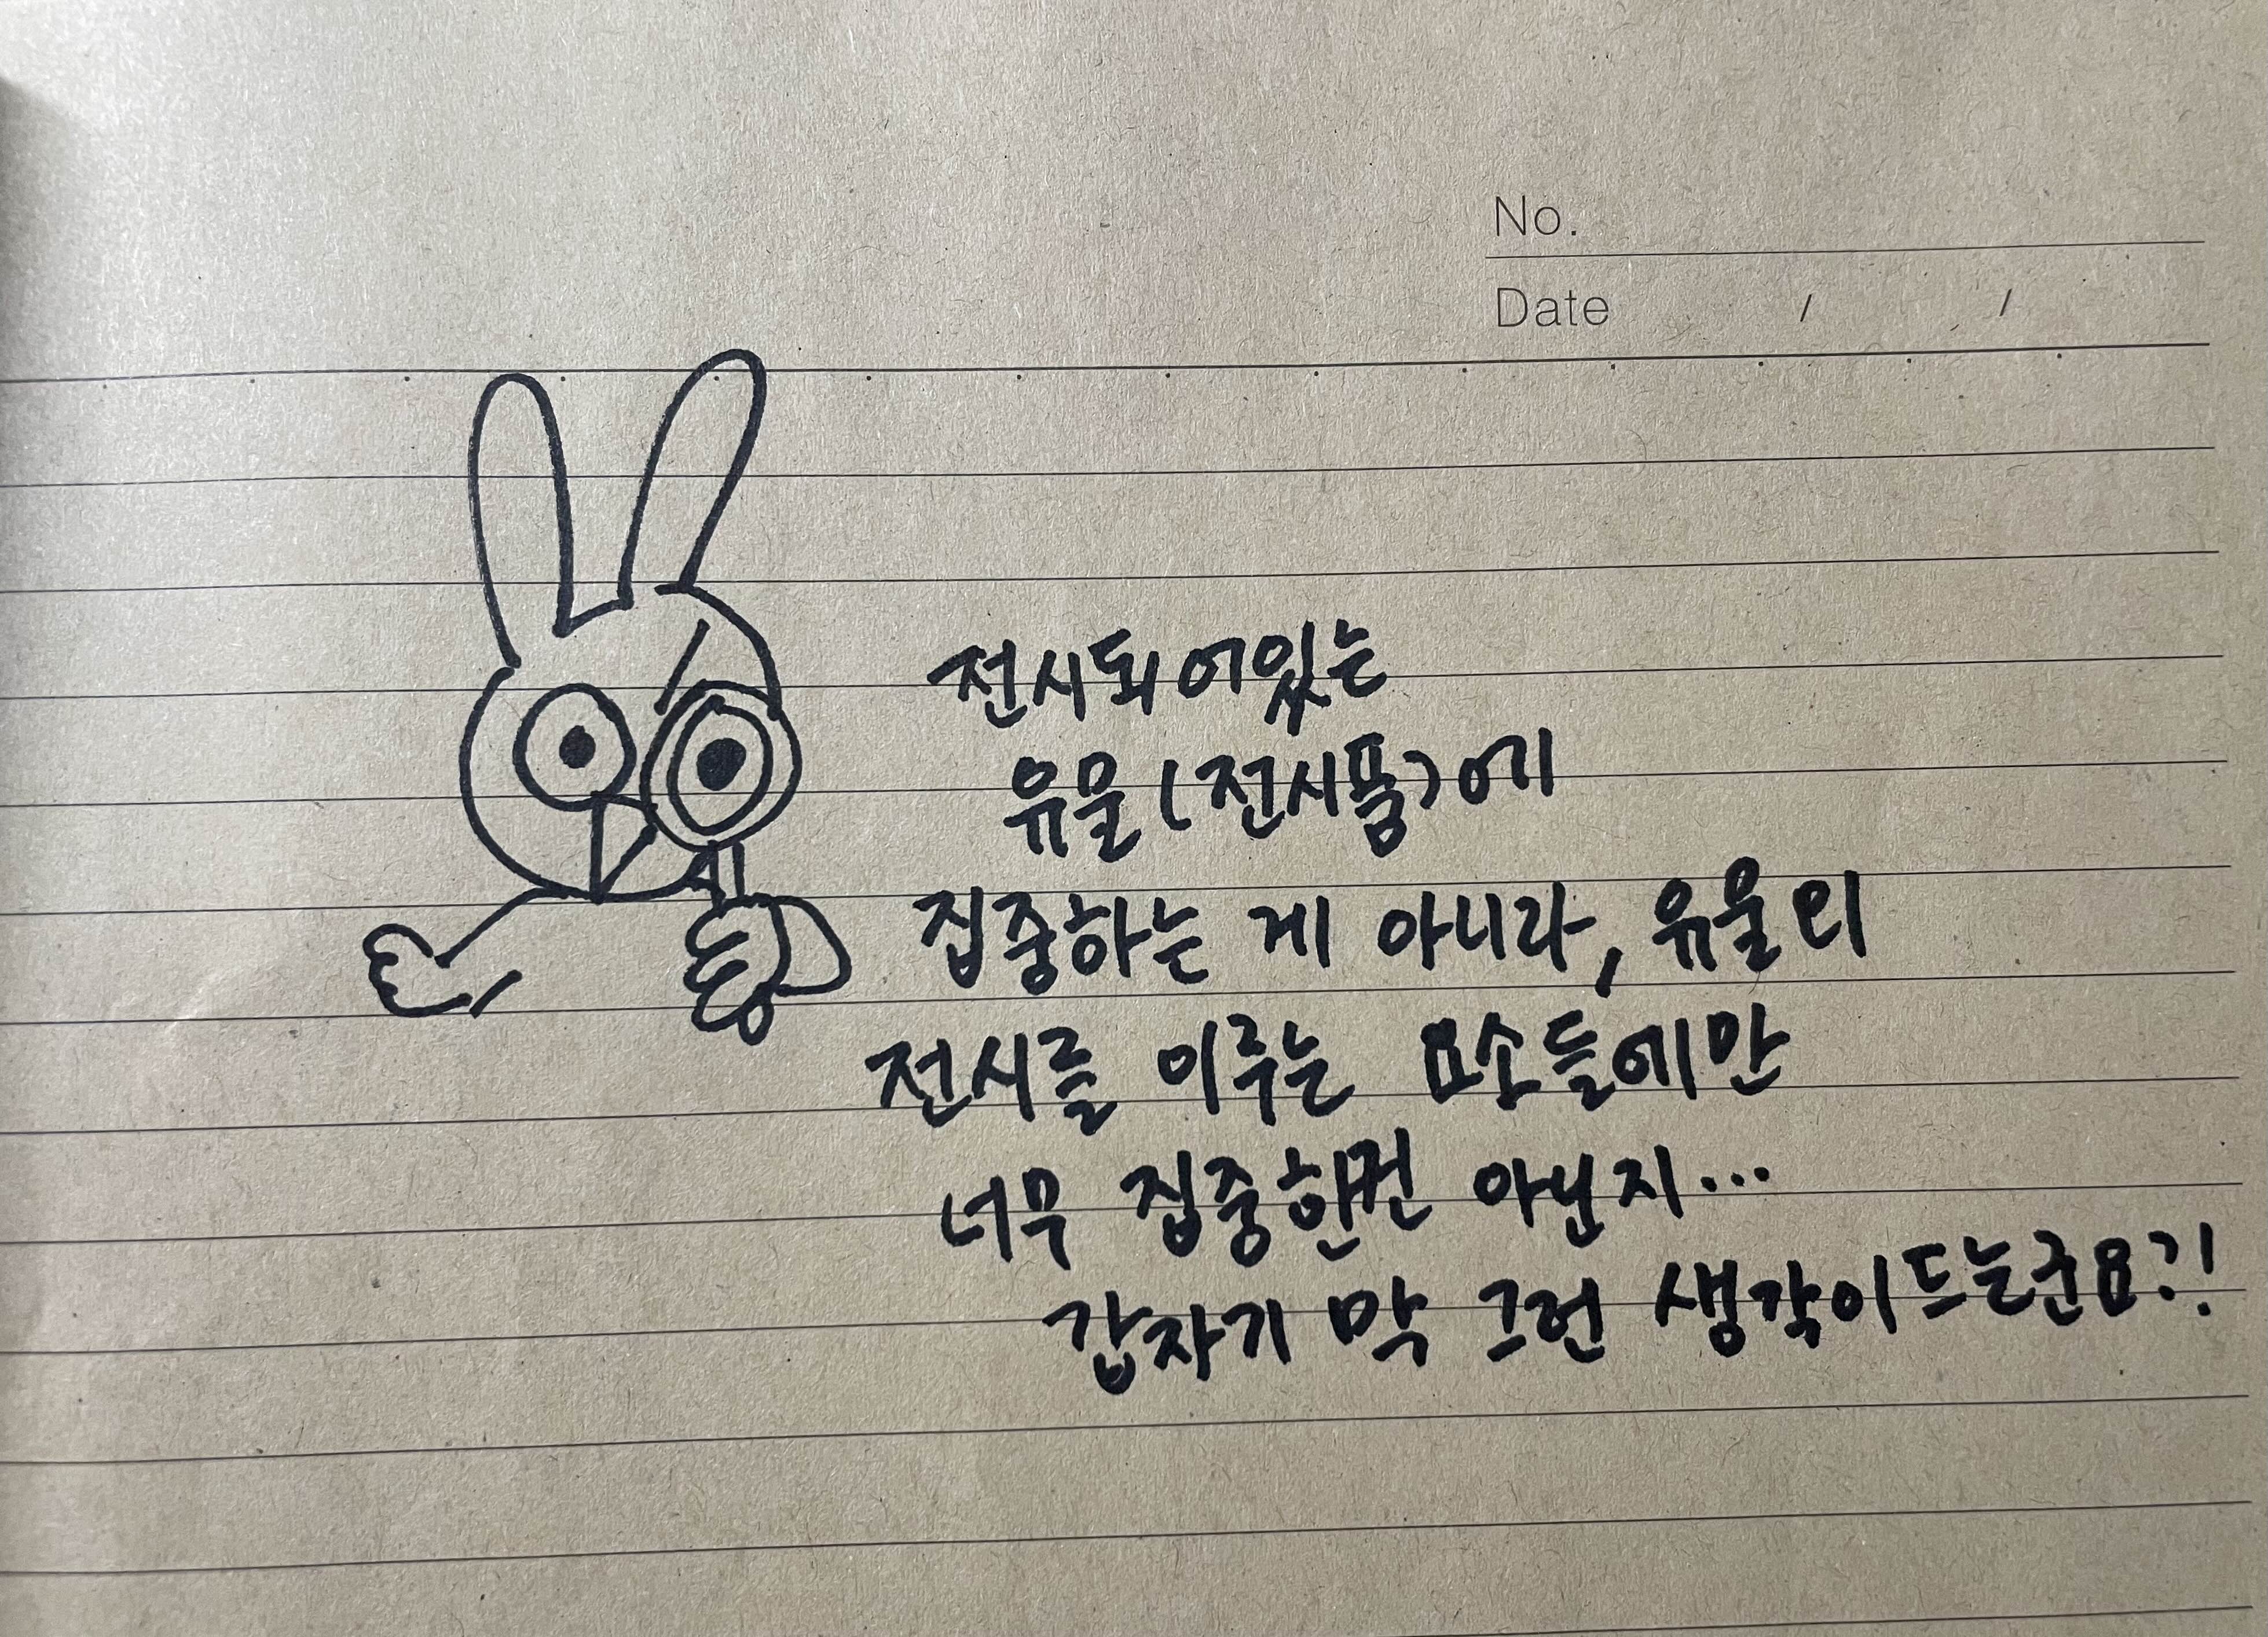 No.
Date / /
전시되어있는
유물(전시품)에
집중하는 게 아니라, 유물의
전시를 이루는 요소들에만
너무 집중한건 아닌지...
갑자기 막 그런 생각이드는군요?!